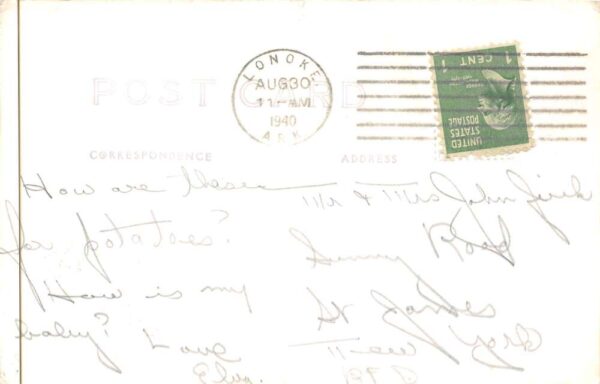 LONOKE
AUG 30
11-AM
1940
ARK.
1 CENT 1
UNITED
STATES
POSTAGE
POST CARD
CORRESPONDENCE
ADDRESS
How are these
for potatoes?
How is my
baby? Love
Elva.
Mr & Mrs John
Sunny Road
St James
New York
RFD